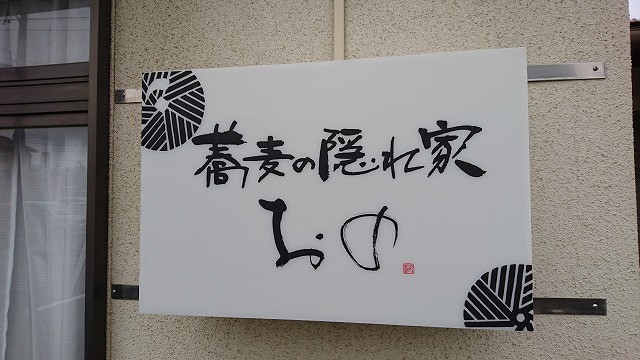 蕎麦の隠れ家
おの